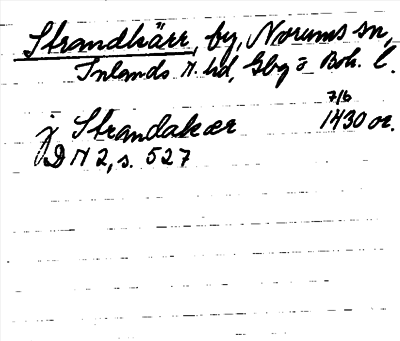 Strandkärr, by, Norums sn,
Inlands N. hd, Gbg o Boh. l.
7/6
j Strandakær 1430 or.
D N 2, s. 527